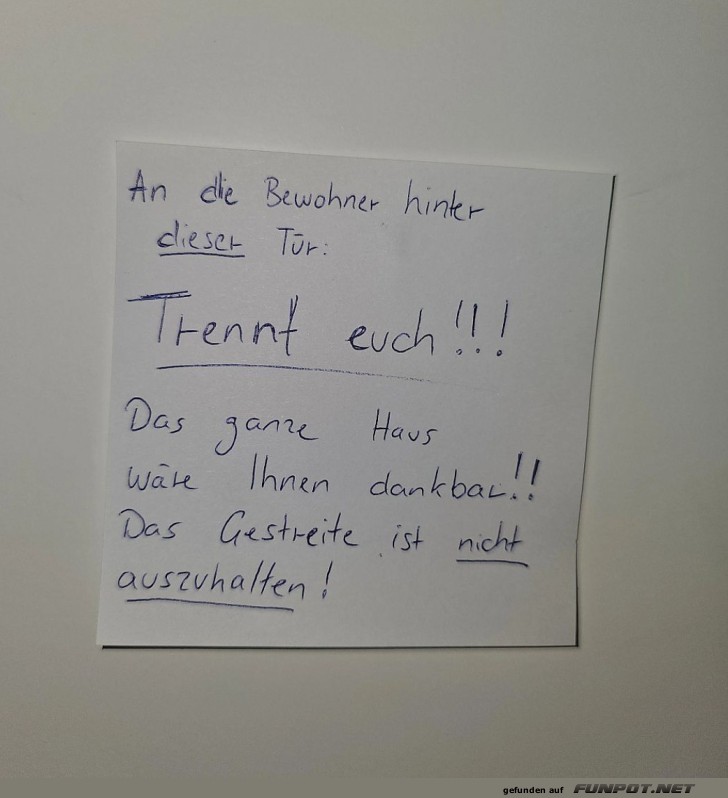 An die Bewohner hinter
dieser Tür:
Trennt euch!!!
Das ganze Haus
wäre Ihnen dankbar!!
Das Gestreite ist nicht
auszuhalten!
gefunden auf FUNPOT.NET